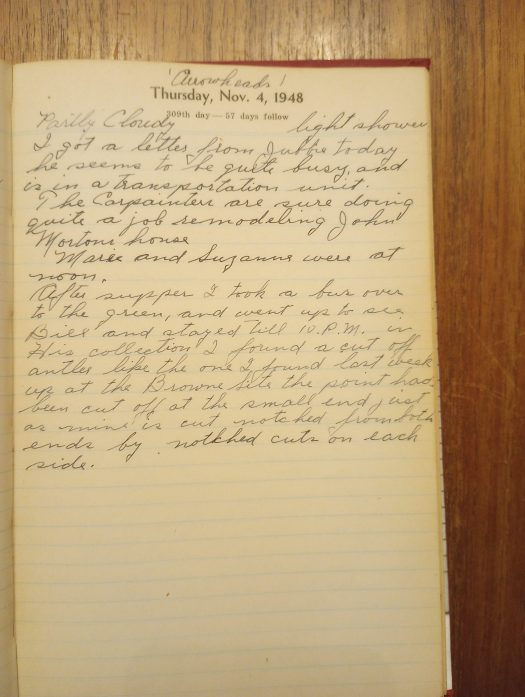 'Arrowheads'
Thursday, Nov. 4, 1948
309th day — 57 days follow
Partly Cloudy light shower
I got a letter from today
he seems to be quite busy, and
is in a transportation unit.
The Carpainters are sure doing
quite a job remodeling John
Mortons house
Marie and Suzanne were at
noon.
After supper I took a bur over
to the green, and went up to see
Bill and stayed till 10. P.M. in
His collection I found a cut off
antler like the one I found last week
up at the Browne Site the point had
been cut off at the small end just
as mine is cut, notched from both
ends by notched cuts on each
side.